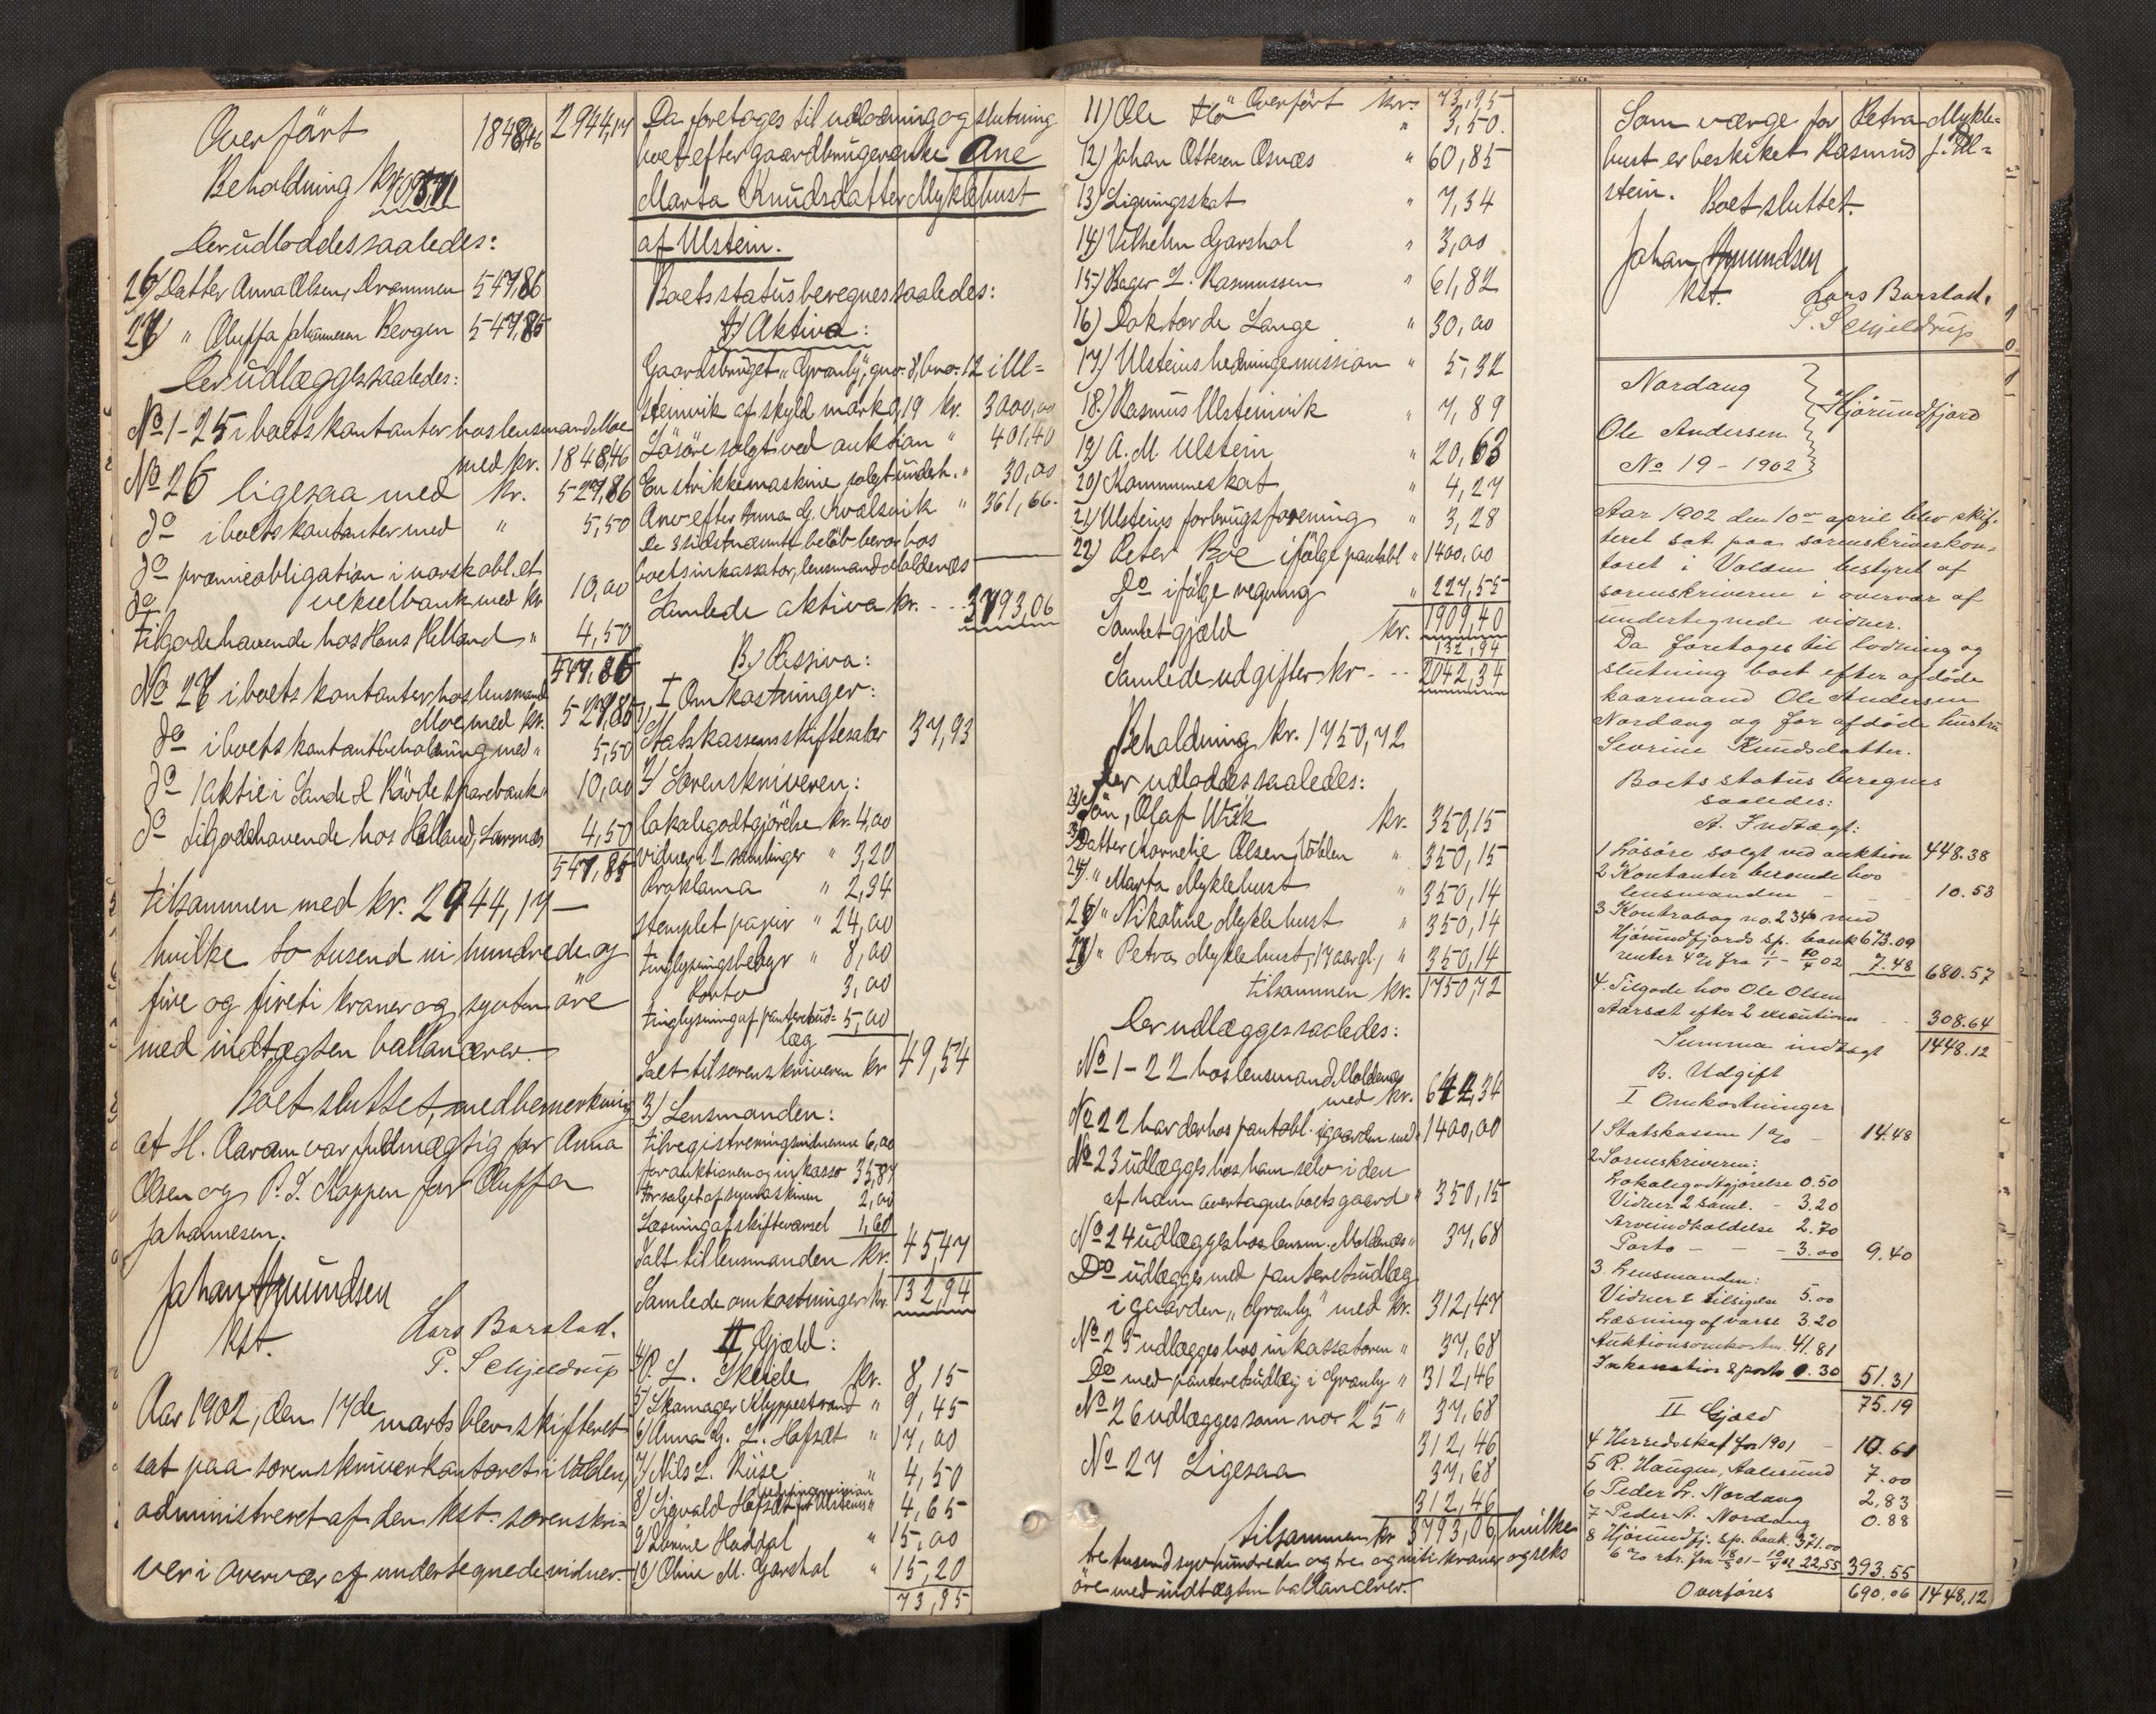 Overført 1848,46 2944,17
Beholdning kr. 1095,71
der udloddes saaledes:
26) Datter Anna Olsen, Drammen 547,86
27) " Oluffa Johannesen Bergen 547,85
der udlægges saaledes:
No 1-25 i boets kontanter hos lensmand Moe
med kr. 1848,46
No 26 ligesaa med kr. 527,86
do i boets kontanter med " 5,50
do præmieobligation i norsk obl. et
do vekselbank med kr 10,00
tilgodehavende hos Hans Helland " 4,50
547,86
No 27 i boets kontanter hos lensmand
Moe med kr. 527,85
do i boets kontantbeholdning med " 5,50
do 1 aktie i Sande & Rövde sparebank " 10,00
do tilgodehavende hos Helland, 4,50
547,85
tilsammen med kr. 2944,17 —
hvilke to tusend ni hundrede og
fire og fireti kroner og sytten öre
med indtægten ballancerer.—
Boet sluttet, med bemerkning
at H. Aaram var fuldmægtig for Anna
Olsen og P. J. Koppen for Oluffa
Johannesen.
Johan Amundsen
kst. Lars Barstad.
P. Schjeldrup
Aar 1902, den 17de marts blev skifteret
sat paa sorenskriverkontoret i Volden,
administreret af den kst. sorenskri=
ver i overvær af undertegnede vidner.
Da foretoges til udlodning og slutning
boet efter gaardbrugerenke Ane
Marta Knudsdatter Myklebust
af Ulstein.
Boets status beregnes saaledes:
A) Aktiva:
Gaardsbruget "Granly", gno. 8, bno. 12 i Ul=
steinvik af skyld mark 0,19 kr. 3000,00
Lösöre solgt ved auktion " 401,40
En strikkemaskine solgt underh. " 30,00
Arv efter Anna G. Kvalsvik " 361,66.
De 3 sidstnævnte belöb beror hos
boets inkassator, lensmand Moldenæs
Samlede aktiva kr. - - 3793,06
B) Passiva:
I Omkostninger:
1) Statskassens skiftesalær 37,93
2) Sorenskriveren:
lokalegodtgjörelse kr. 4,00
vidner 2 samlinger " 3,20
Proklama " 2,34
stemplet papir " 24,00
tinglysningsgebyr " 8,00
Porto 3,00
tinglysning af panteretsud= 5,00
læg
Ialt til sorenskriveren kr 49,54
3) Lensmanden:
til registreringsvidnerne 6,00
for auktionen og inkasso 35,87
for salget af symaskinen 2,00
Læsning af skiftevarsel 1,60
Ialt til lensmanden kr. 45,47
Samlede omkostninger kr. 132,94
II Gjæld:
4) P. L. Skeide kr. 8,15
5) Skomager Klyppestrand " 9,45
6) Anna G. L. Hofsæt " 17,00
7) Nils L. Riise " 4,50
8) Sigvald Hofsæt for Ulsteins " 4,65
9) Lovine Haddal " 15,00
10) Oline M. Garshol " 15,20
73,95
Overført kr. 73,95
11) Ole " 3,50.
12) Johan Ottesen Osnæs " 60,85
13) Ligningsskat " 7,34
14) Vilhelm Garshol " 3,00
15) Bager L. Rasmussen " 61,82
16) Doktor de Lange " 30,00
17) Ulsteins hedningemission " 5,32
18) Rasmus Ulsteinvik " 7,89
19) A. M. Ulstein " 20,63
20) Kommuneskat " 4,27
21) Ulsteins forbrugsforening " 3,28
22) Peter Boe ifölge pantobl " 1400,00
Do ifölge regning " 227,55
1909,40
Samlet gjæld kr. 132,94
Samlede udgifter kr - - 2042,34
Beholdning kr. 1750,72
der udloddes saaledes:
23) Sön, Olaf Wiik kr. 350,15
24) Datter Kornelie Olsen, Volden " 350,15
25) " Marta Myklebust " 350,14
26) " Nikoline Myklebust " 350,14
27) " Petra Myklebust, 17 aar gl., " 350,14
tilsammen kr. 1750,72
der udlægges saaledes:
No 1-22 hos lensmand Moldenæs
med kr. 642,34
No 22 har derhos pantobl. i gaarden med " 1400,00
No 23 udlægges hos ham selv i den
af ham overtagne boets gaard " 350,15
No 24 udlægges hos lensm. Moldenæs " 37,68
Do udlægges med panteretsudlæg
i gaarden "Granly" med kr. 312,47
No 25 udlægges hos inkassatoren " 37,68
Do med panteretsudlæg i Granly " 312,46
No 26 udlægges som no 25 " 37,68
312,46
No 27 Ligesaa 37,68
312,46
tilsammen kr 3793,06, hvilke
tre tusend syv hundrede og tre og niti kroner og seks
öre med indtægten ballancerer.
Som værge for Petra Mykle=
bust er beskikket Rasmus J. Ul=
stein. Boet sluttet.
Johan Amundsen
kst. Lars Barstad.
P. Schjeldrup
Nordang
Ole Andersen } Hjörundfjord
No 19 - 1902
Aar 1902 den 10de april blev skif-
teret sat paa sorenskriverkon-
toret i Volden bestyret af
sorenskriveren i overvær af
undertegnede vidner.
Da foretoges til lodning og
slutning boet efter afdöde
kaarmand Ole Andersen
Nordang og för afdöde hustru
Sevrine Knudsdatter.
Boets status beregnes
saaledes:
A. Indtægt:
1 Lösöre solgt ved auktion 448.38
2 Kontanter beroende hos
lensmanden - - 10.53
3 Kontrabog no. 2340 med
Hjörundfjords sp. bank 673.09
renter 4% fra 1/1 - 10/4 02 7.48 680.57
4. Tilgode hos Ole Olsen
Aarsæt efter 2 executioner - - 308.64
Summa indtægt 1448.12
B. Udgift
I Omkostninger
1 Statskassen 1% - 14.48
2 Sorenskriveren:
Lokalegodtgjörelse 0.50
Vidner 2 saml. - 3.20
Arveindkaldelse 2.70
Porto - - - 3.00 9.40
3. Lensmanden:
Vidner & tilsigelse 5.00
Læsning af varsel 3.20
Auktionsomkostn. 41.81
Inkassation & porto 1.30 51.31
75.19
II Gjæld
4 Herredsskat for 1901 - 10.61
5 R. Haugen, Aalesund 7.00
6 Peder Lr. Nordang 2,83
7 Peder A. Nordang 0.88
8 Hjörundfj. sp. bank 371.00
6% rtr. fra 18/3 01 - 10/4 02 22,55 393.55
Overföres 690.06 1448,12